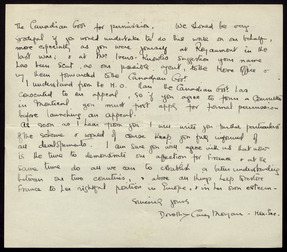 the Canadian Govt for permission. We should be very
grateful if you would undertake to do this work on our behalf,
more especially as you were yourself at Royaumont in the
last war, & at Mrs. suggestion your name
has been sent, as our possible agent, to the Home Office &
by them forwarded to the Canadian Govt.
I understand from the H.O. that the Canadian Govt has
consented to an appeal, so if you agree to form a Committee
in Montreal you must first apply for formal permission
before launching an appeal.
As soon as I hear from you I will write you further particulars
of the scheme & would of course keep you fully informed of
all developments. I am sure you will agree with us that now
is the time to demonstrate our affection for France & at the
same time do all we can to establish a better understanding
between our two countries, & above all things help restore
France to her rightful position in Europe, & in her own esteem.
Sincerely yours
Dorothy Morgan - Hon. Sec.